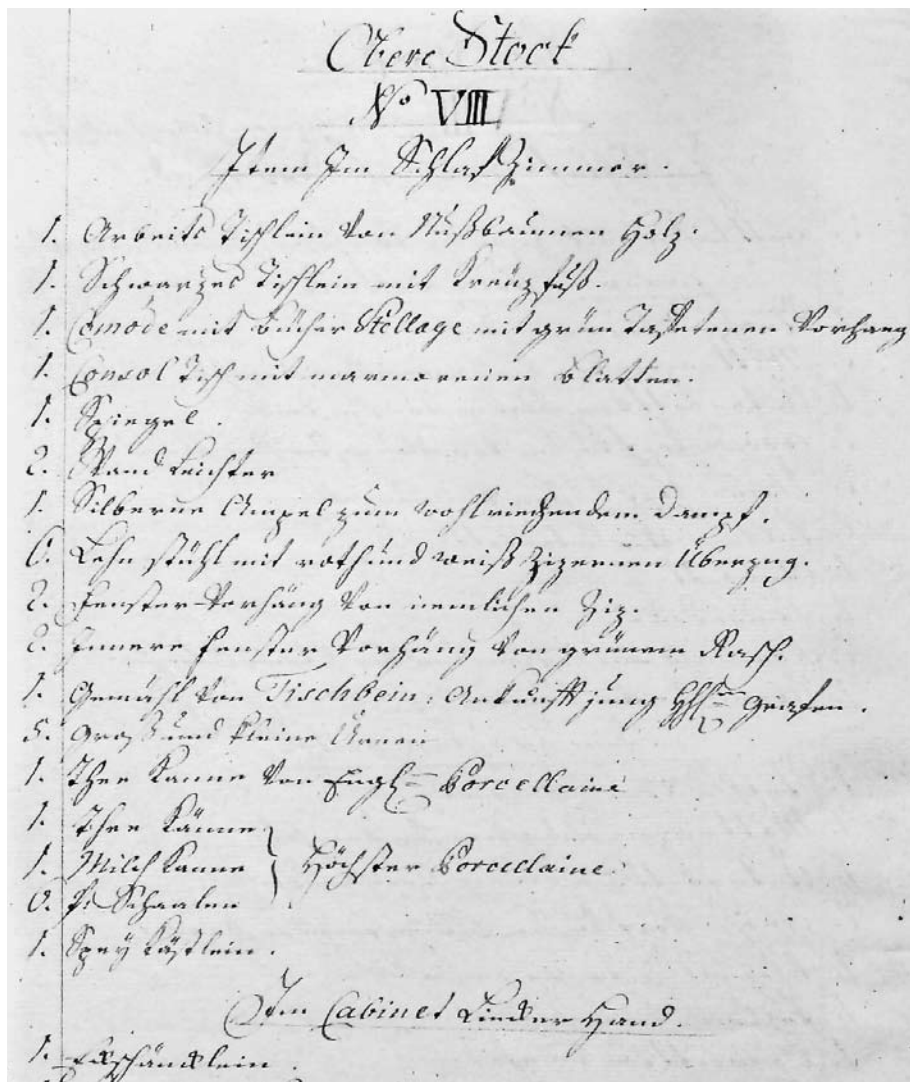 Obere Stock
No VIII
Item Im Schlaf Zimmer.
1. Arbeits Tischlein von Nußbaumen Holz.
1. Schwarzes Tischlein mit Kreuzfuß.
1. Comode mit bücher Stellage mit grün Taffetenen Vorhang
1. Consol Tisch mit marmorenen blatten.
1. Spiegel.
2. Wand Leichter
1. Silberne Ampel zum wohlriechendem Dampf.
6. Lehn stühl mit roth und weiß Zizernen Überzug.
2. Fenster Vorhäng von nemlichen Ziz.
2. Innere Fenster Vorhäng von grünem Rasch.
1. Gemähl von Tischbein: Ankunfft jung Grafen.
5. Groß und kleine Urnen
1. Thee Kanne von Engl. Porcellaine
1. Thee Känne
1. Milch Kanne } Höchster Porcellaine
6. Pr Schaalen
1. Spey Kästlein.
Im Cabinet Lincker Hand.
1. Eckschäncklein.